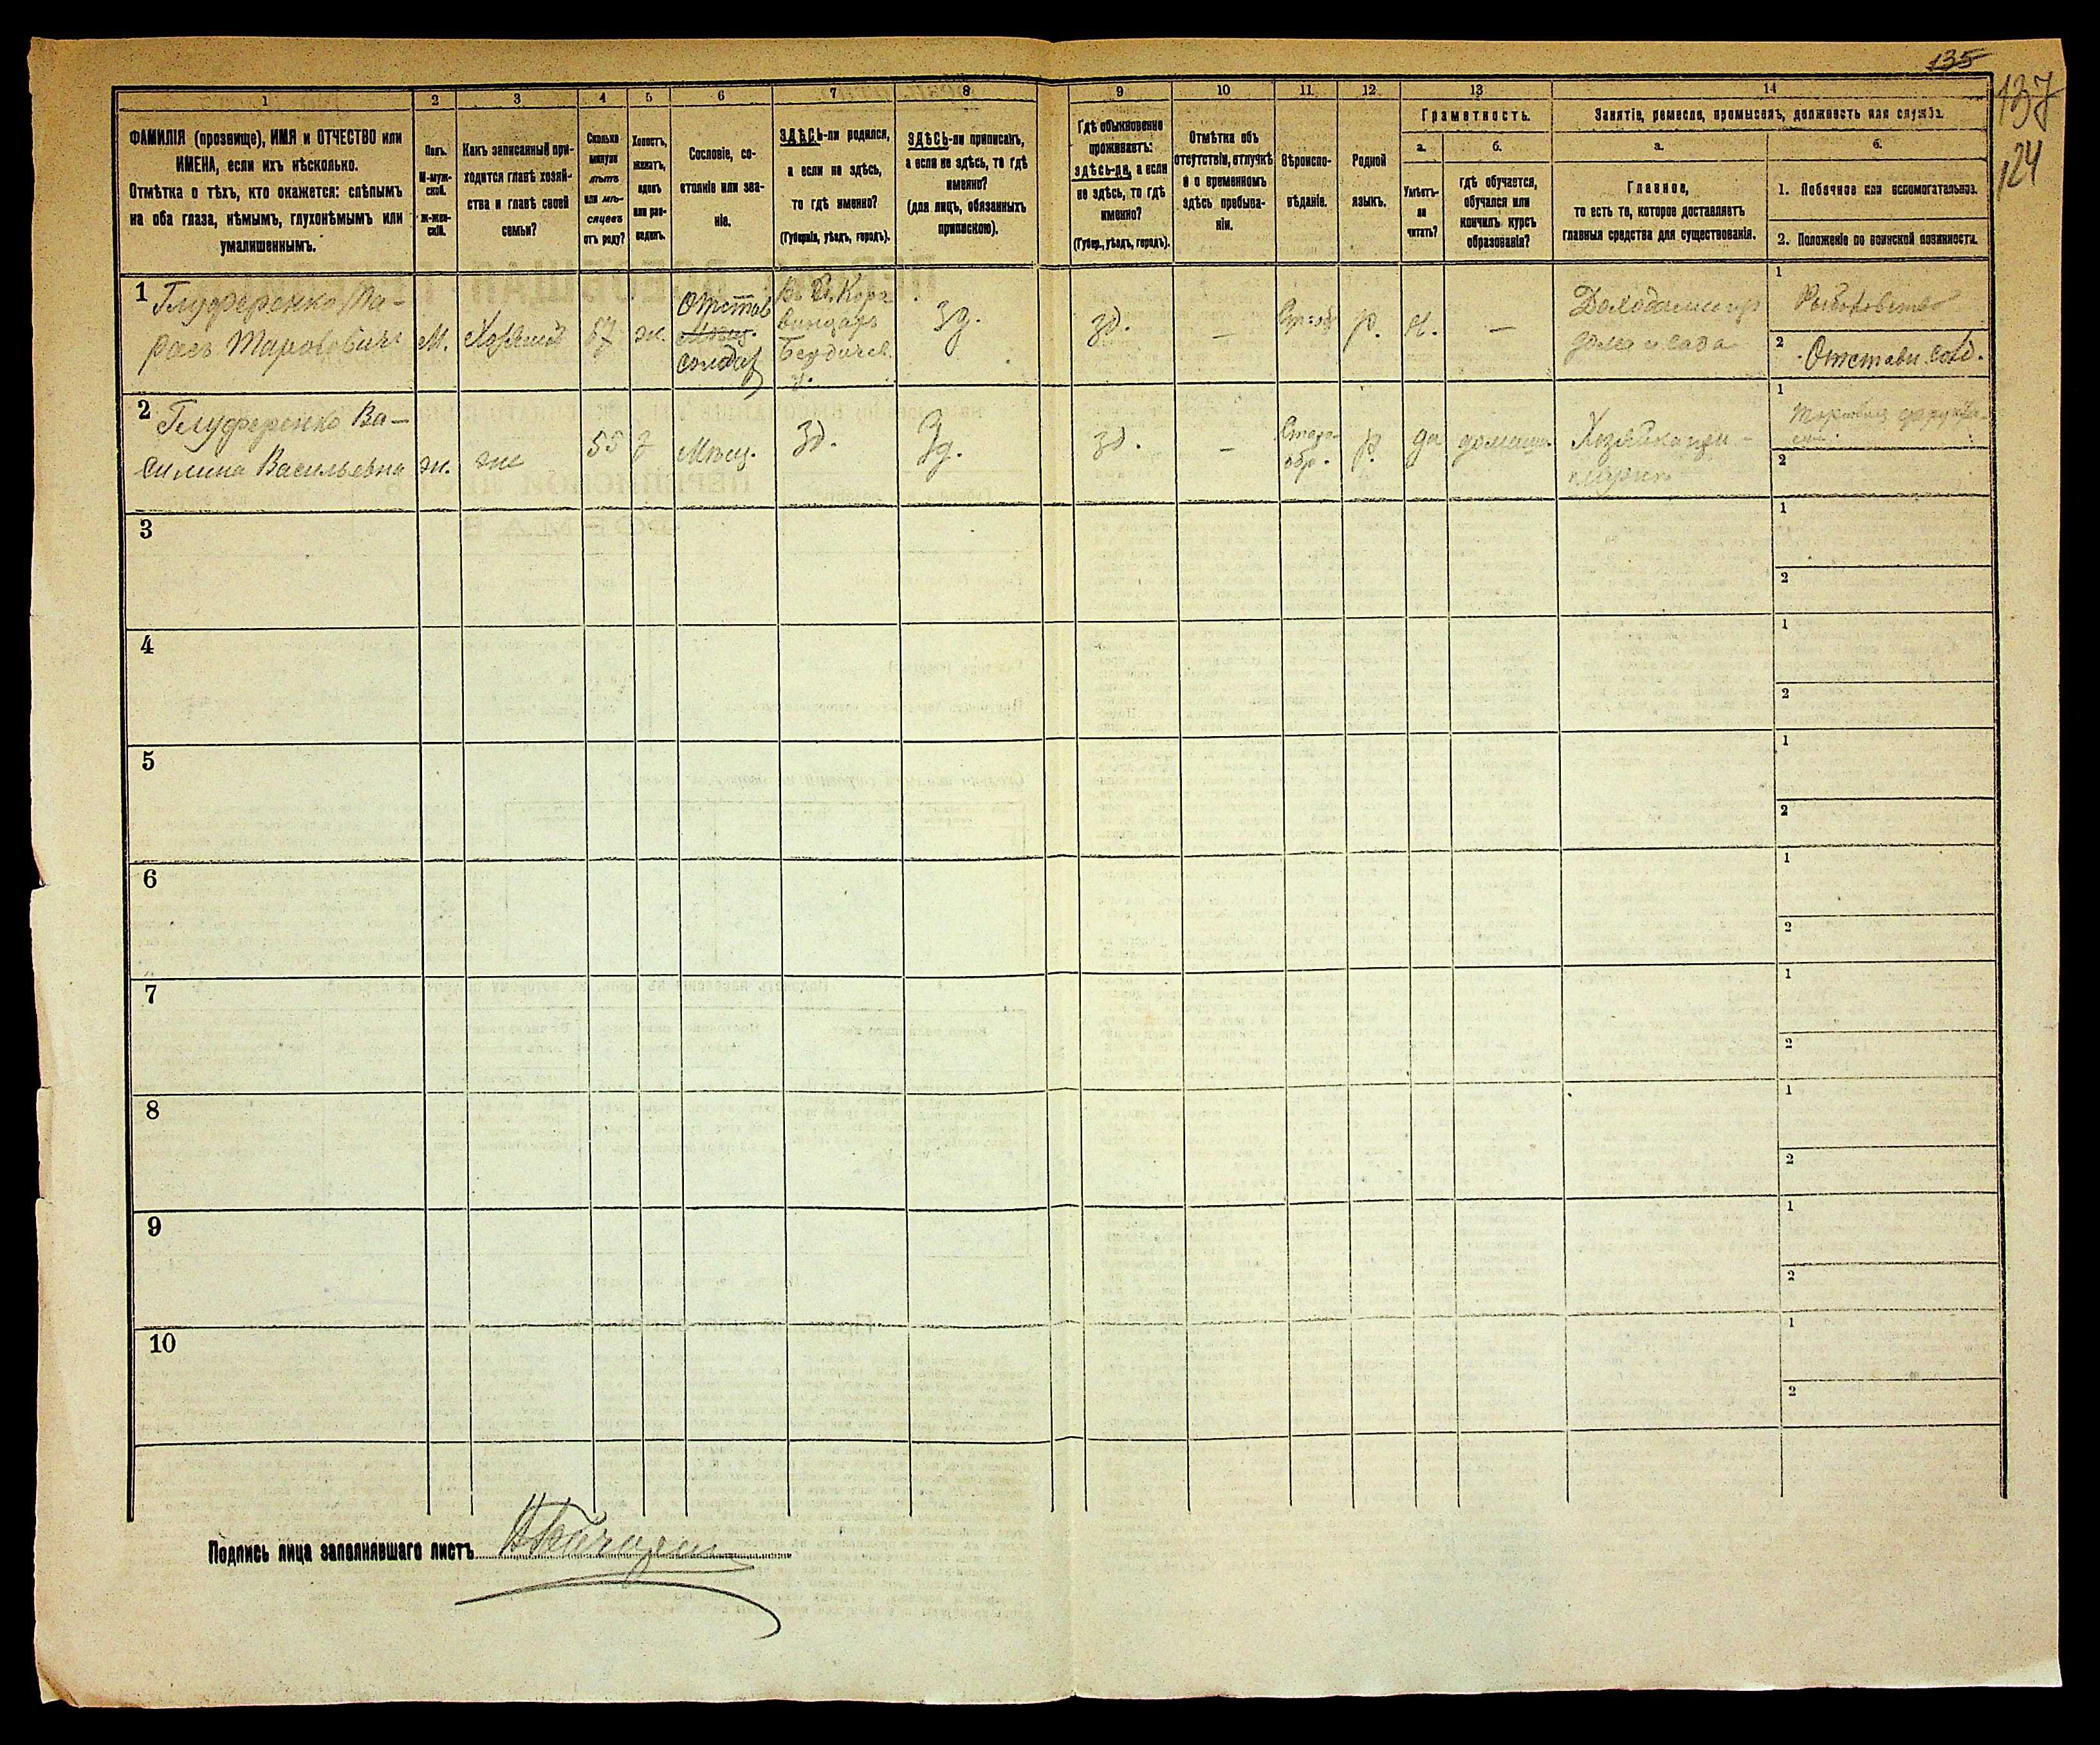 135
137
124
1
2
3
4
5
6
7
8
9
10
11
12
13
14
ФАМИЛІЯ (прозвище), ИМЯ и ОТЧЕСТВО или
ИМЕНА, если ихъ нѣсколько.
Отмѣтка о тѣхъ, кто окажется: слѣпымъ
на оба глаза, нѣмымъ, глухонѣмымъ или
умалишеннымъ.
Полъ.
М-муж-
ской.
Ж-жен-
скій.
Какъ записанный при-
ходится главѣ хозяй-
ства и главѣ своей
семьи?
Сколько
минуло
лѣтъ
или мѣ-
сяцевъ
отъ роду?
Холостъ,
женатъ,
вдовъ
или раз-
веденъ.
Сословіе, со-
стояніе или зва-
ніе.
ЗДѢСЬ-ли родился,
а если не здѣсь,
то гдѣ именно?
(Губернія, уѣздъ, городъ).
ЗДѢСЬ-ли приписанъ,
а если не здѣсь, то гдѣ
именно?
(для лицъ, обязанныхъ
припискою).
Гдѣ обыкновенно
проживаетъ:
здѣсь-ли, а если
не здѣсь, то гдѣ
именно?
(Губер., уѣздъ, городъ).
Отмѣтка объ
отсутствіи, отлучкѣ
и о временномъ
здѣсь пребыва-
ніи.
Вѣроиспо-
вѣданіе.
Родной
языкъ.
Грамотность.
а.
Умѣетъ-
ли
читать?
б.
гдѣ обучается,
обучался или
кончилъ курсъ
образованія?
Занятіе, ремесло, промыселъ, должность или служба.
а.
Главное,
то есть то, которое доставляетъ
главныя средства для существованія.
б.
1. Побочное или вспомогательное.
2. Положеніе по воинской повинности.
1
Глуференко Та-
расъ Тарасовичъ
М.
Хозяинъ
57
ж.
Отстав
Мѣщ.
солдат
Бердичев.
у.
Зд.
зд.
—
р.
н.
—
дома и сада
1
Рыболовство
2
Отставн. солд.
2
Глуференко Ва-
силина Васильевна
ж.
же
55
з
Мѣщ.
Зд.
Зд.
зд.
—
Старо-
обр.
р.
да
домашн.
Хозяйка при-
1
2
3
1
2
4
1
2
5
1
2
6
1
2
7
1
2
8
1
2
9
1
2
10
1
2
Подпись лица заполнявшаго листъ